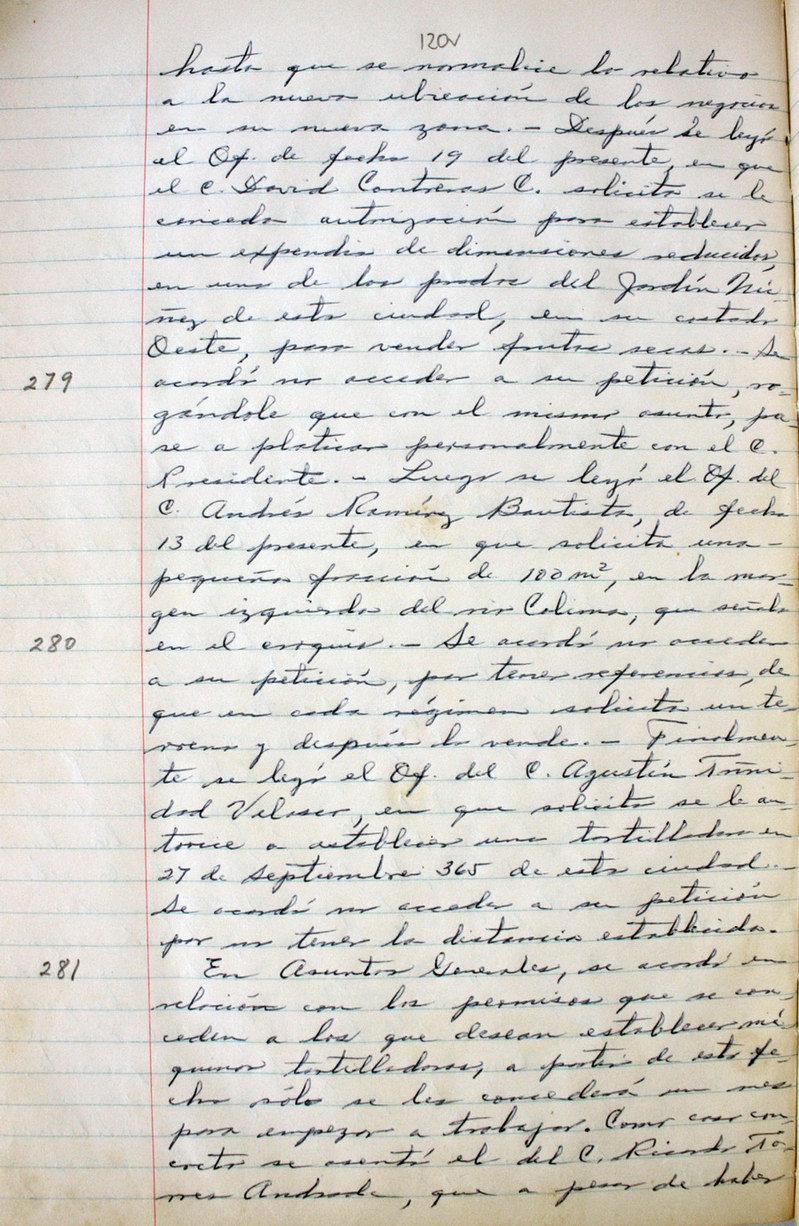 120v
hasta que se normalice lo relativo
a la nueva ubicación de los negocios
en su nueva zona.- Después se leyó
el Of. de fecha 19 del presente, en que
el C. David Contreras C. solicita se le
conceda autorización para establecer
un expendio de dimensiones reducidas,
en uno de los prados del Jardín Nú-
ñez de esta ciudad, en su costado
Oeste, para vender frutas secas.- Se
279 acordó no acceder a su petición, ro-
gándole que con el mismo asunto, pa-
se a platicar personalmente con el C.
Presidente.- Luego se leyó el Of. del
C. Andrés Ramírez Bautista, de fecha
13 del presente, en que solicita una-
pequeña fracción de 100 m², en la mar-
gen izquierda del río Colima, que señala
280 en el croquis.- Se acordó no acceder
a su petición, por tener referencias, de
que en cada régimen solicita un te-
rreno y después lo vende.- Finalmen-
te se leyó el Of. del C. Agustín Trini-
dad Velasco, en que solicita se le au-
torice a establecer una tortilladora en
27 de Septiembre 365 de esta ciudad.-
Se acordó no acceder a su petición
por no tener la distancia establecida.
281 En Asuntos Generales, se acordó en
relación con los permisos que se con-
ceden a los que desean establecer má-
quinas tortilladoras, a partir de esta fe-
cha sólo se les concederá un mes
para empezar a trabajar. Como caso con-
creto se asentó el del C. Ricardo To-
rres Andrade, que a pesar de haber